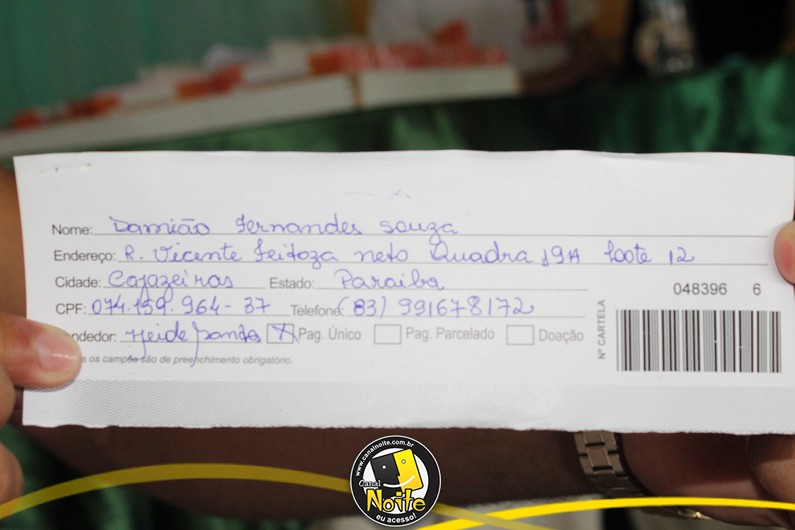 Nome: Damião Fernandes Souza
Endereço: R. Vicente Feitoza neto Quadra 19A loote 12
Cidade: Cajazeiras Estado: Paraiba
CPF: 074.159.964-37 Telefone: (83) 991678172
ndedor: Neide Santos X Pag. Único Pag. Parcelado Doação
s os campos são de preenchimento obrigatório.
048396 6
Nº CARTELA
www.canalnoite.com.br
Canal
Noite
eu acesso!